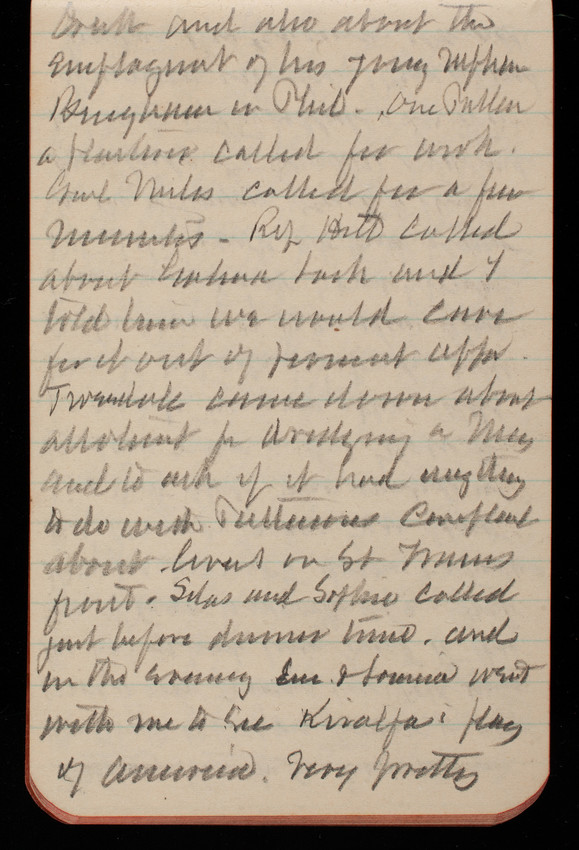 and also about the
Employment of his young Nephew
Bingham in Phil. One Fuller
a called for work.
Genl Miles called for a few
minutes - Rep Hitt called
about Galena and I
told him we would care
for it out of present appr.
Truesdale came down about
allotment for dredging a
and to ask if it had anything
to do with Pullmans Complaint
about levels on St
front. Silas and Sophie called
just before dinner time. and
in the evening Em. & went
with me to See Kiralfys play
of America. Very pretty